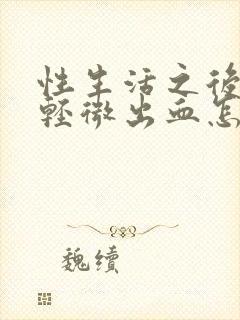 性生活之後
輕微出血怎
魏續